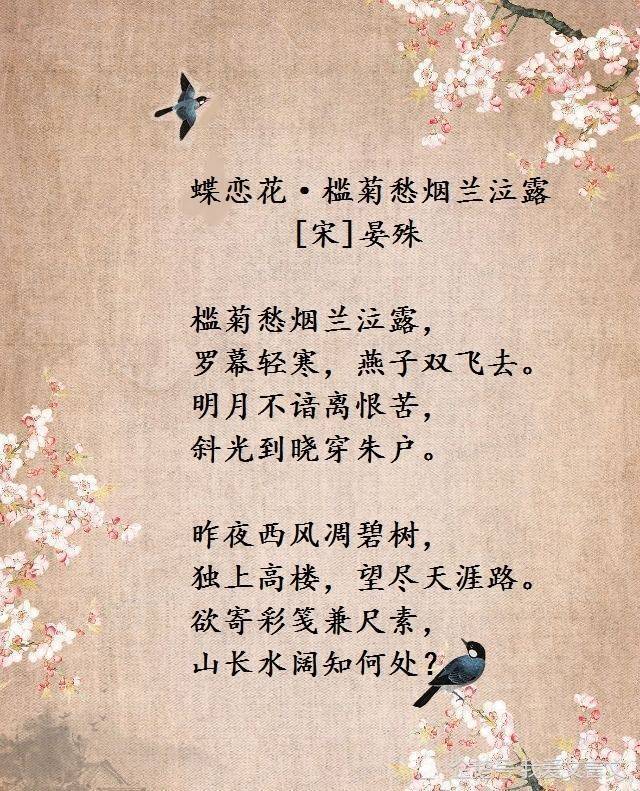 蝶恋花·槛菊愁烟兰泣露
[宋]晏殊
槛菊愁烟兰泣露，
罗幕轻寒，燕子双飞去。
明月不谙离恨苦，
斜光到晓穿朱户。
昨夜西风凋碧树，
独上高楼，望尽天涯路。
欲寄彩笺兼尺素，
山长水阔知何处？